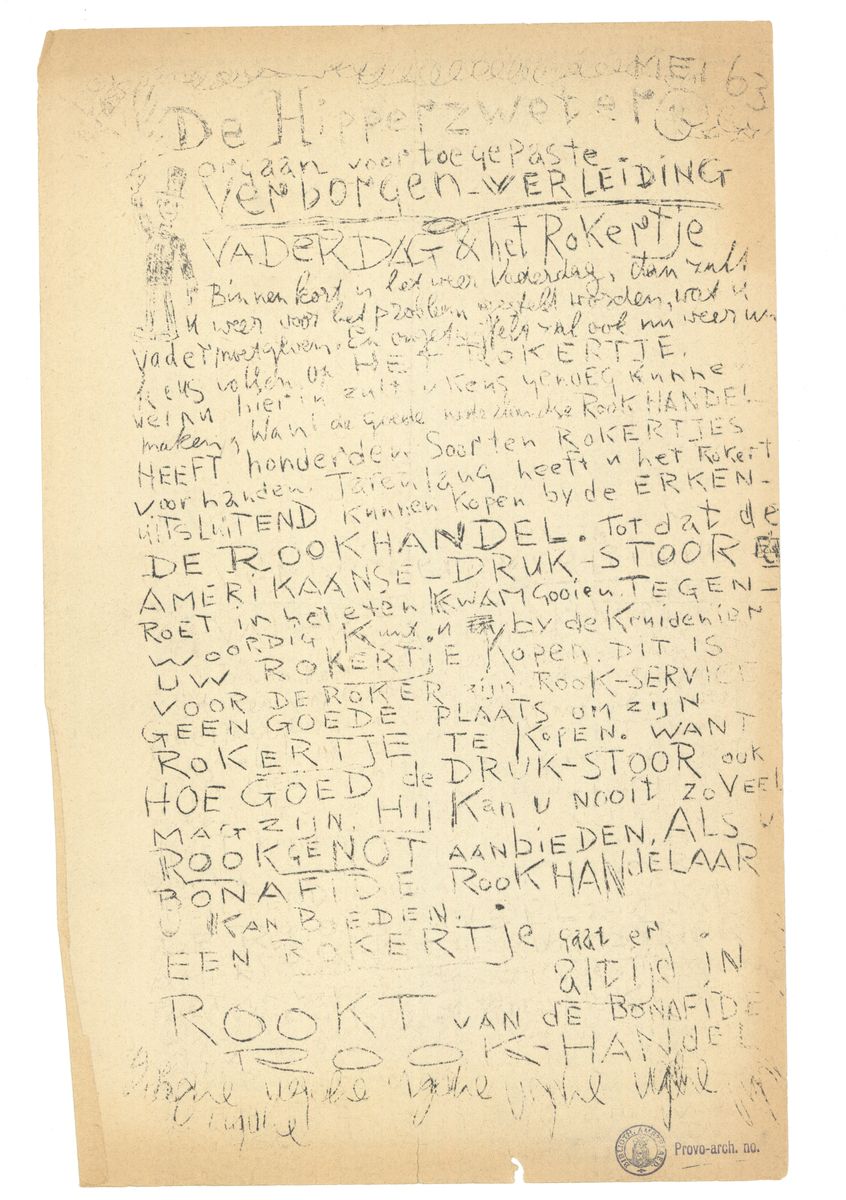 MEI 63
De Hipperzweter
orgaan voor toegepaste
Verborgen-VERLEIDING
VADERDAG & het RoKertje
Binnenkort is het weer Vaderdag, dan zult
u weer voor het problem gesteld worden, wat u
vader moet geven. En ongetwyfeld zal ook nu weer uw
keus vallen op HET ROKERTJE.
welnu hierin zult u Keus genoeg kunne
maken, want de goede nederlandse ROOKHANDEL
HEEFT honderden Soorten ROKERTJES
voorhanden. Jarenlang heeft u het Rokert
UITSLUITEND Kunnen Kopen by de ERKEN-
DE ROOKHANDEL. Tot dat de
AMERIKAANSE-DRUK-STOOR
ROET in het eten KWAM Gooien. TEGEN-
WOORDIG Kunt u by de Kruidenier
UW ROKERTJE Kopen. DIT IS
VOOR DE ROKER zijn ROOK-SERVICE
GEEN GOEDE PLAATS OM ZIJN
ROKERTJE TE KOPEN. WANT
HOE GOED de DRUK-STOOR ook
MAG ZIJN. HIJ Kan u NOOIT ZOVEEL
ROOKGENOT AANBIEDEN, ALS U
BONAFIDE ROOKHANDELAAR
U KAN BIEDEN.
EEN ROKERTJE gaat er
altijd IN
ROOKT VAN dE BONAFIDE
ROOK-HANdEL
Ughe ughe ughe ughe Ughe
ughe
BIBLIOTH. AMSTELAED.
Provo-arch. no.